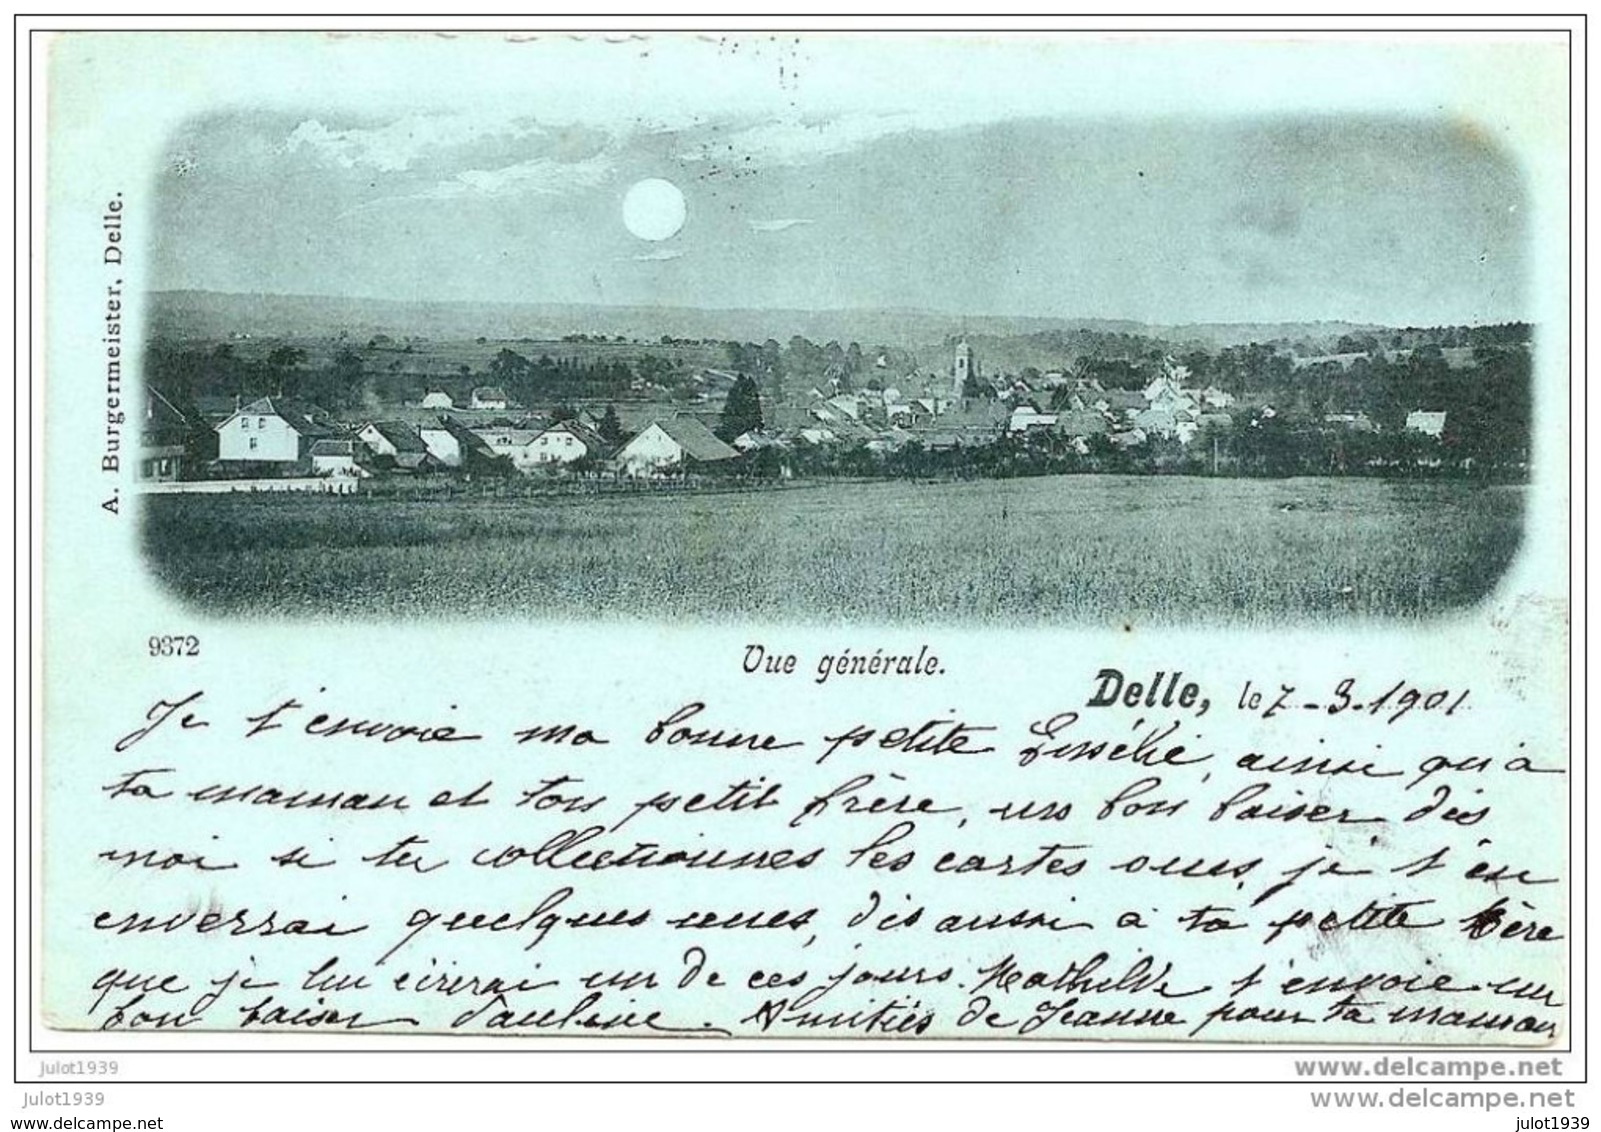 A. Burgermeister, Delle.
9372
Vue générale.
Delle, le 7-3-1901
Je t'envoie ma bonne petite ainsi qu'à
ta maman et ton petit frère, un bon baiser dis
moi si tu collectionnes les cartes vues, je t'en
enverrai quelques unes, dis aussi à ta petite mère
que je lui écrirai un de ces jours. Mathilde t'envoie un
bon baiser Pauline. Amitiés de Jeanne pour ta maman
julot1939
www.delcampe.net
julot1939
www.delcampe.net
www.delcampe.net
julot1939